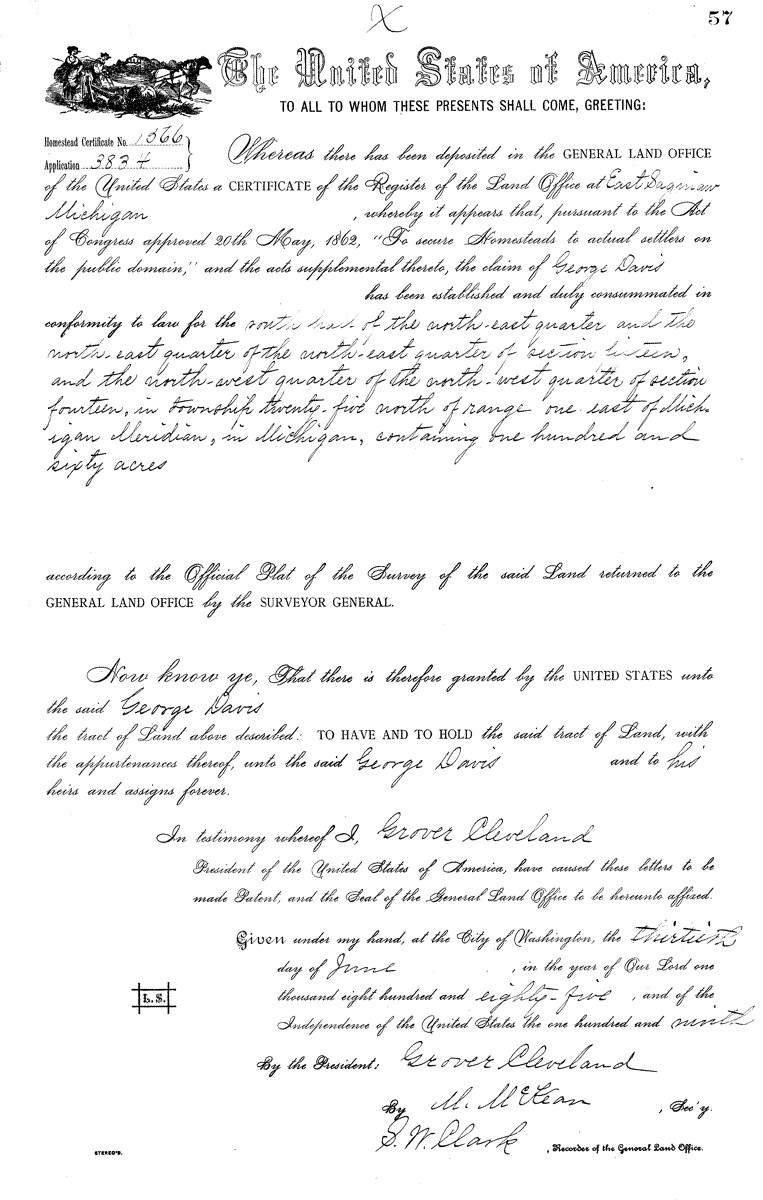 X
57
The United States of America,
TO ALL TO WHOM THESE PRESENTS SHALL COME, GREETING:
Homestead Certificate No. 1366
Application 3834
Whereas there has been deposited in the GENERAL LAND OFFICE
of the United States a CERTIFICATE of the Register of the Land Office at East Saginaw
Michigan , whereby it appears that, pursuant to the Act
of Congress approved 20th May, 1862, "To secure Homesteads to actual settlers on
the public domain," and the acts supplemental thereto, the claim of George Davis
has been established and duly consummated in
conformity to law for the south half of the north-east quarter and the
north-east quarter of the north-east quarter of section fifteen,
and the north-west quarter of the north-west quarter of section
fourteen, in township twenty-five north of range one east of Mich-
igan Meridian, in Michigan, containing one hundred and
sixty acres
according to the Official Plat of the Survey of the said Land returned to the
GENERAL LAND OFFICE by the SURVEYOR GENERAL.
Now know ye, That there is therefore granted by the UNITED STATES unto
the said George Davis
the tract of Land above described: TO HAVE AND TO HOLD the said tract of Land, with
the appurtenances thereof, unto the said George Davis and to his
heirs and assigns forever.
In testimony whereof I, Grover Cleveland
President of the United States of America, have caused these letters to be
made Patent, and the Seal of the General Land Office to be hereunto affixed.
Given under my hand, at the City of Washington, the thirtieth
day of June , in the year of Our Lord one
thousand eight hundred and eighty-five , and of the
Independence of the United States the one hundred and ninth
L.S.
By the President: Grover Cleveland
By M. McKean , Sec'y.
S. W. Clark , Recorder of the General Land Office.
STEREO'D.